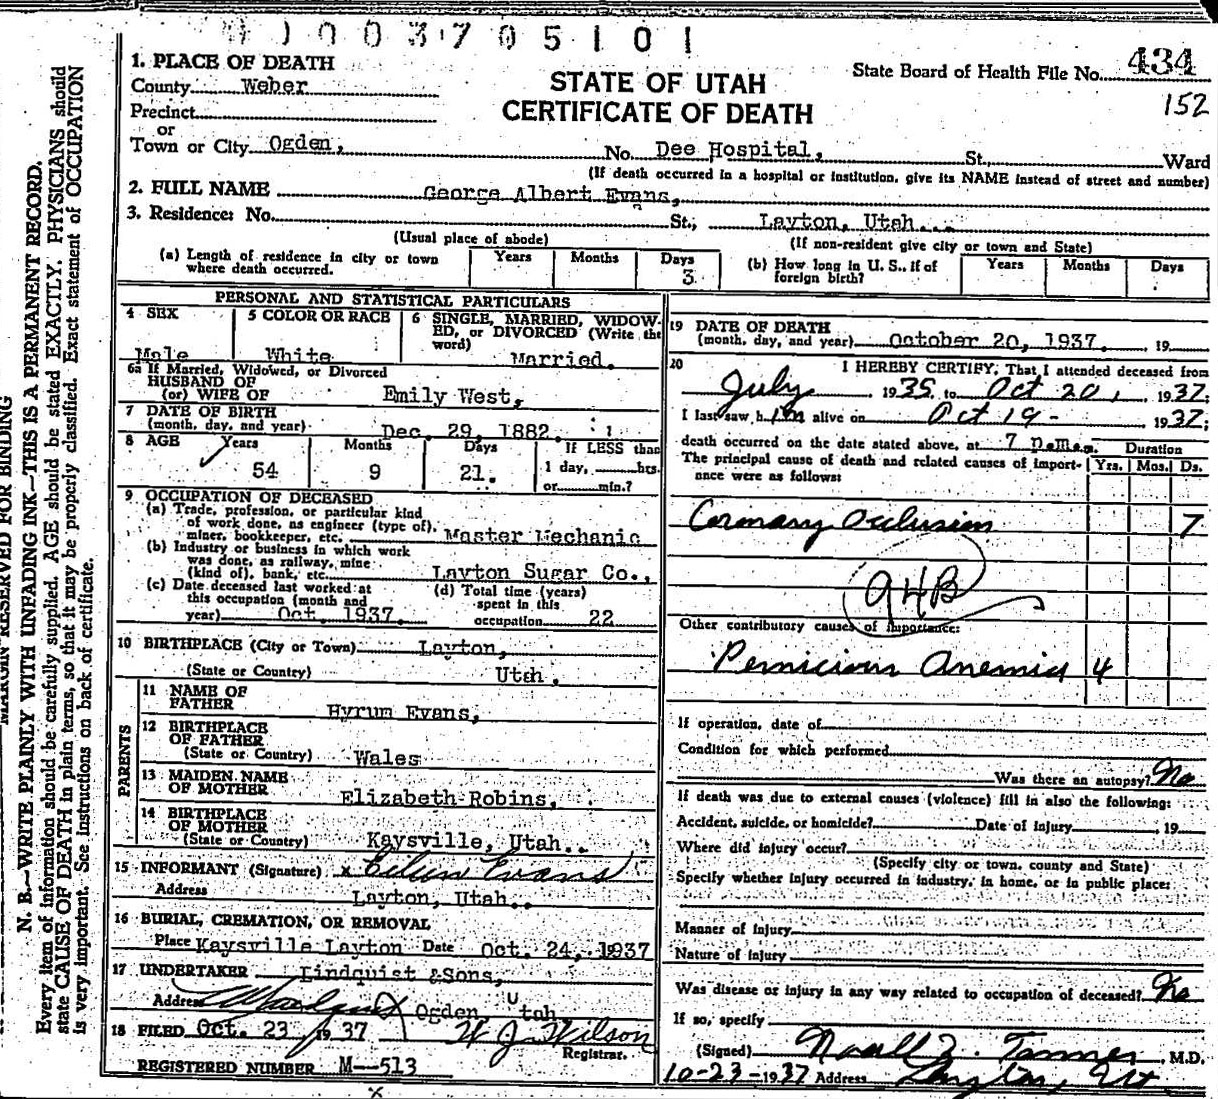 N. B.—WRITE PLAINLY WITH UNFADING INK—THIS IS A PERMANENT RECORD.
Every item of information should be carefully supplied. AGE should be stated EXACTLY. PHYSICIANS should
state CAUSE OF DEATH in plain terms, so that it may be properly classified. Exact statement of OCCUPATION
is very important. See instructions on back of certificate.
MARGIN RESERVED FOR BINDING
0 0 3 7 0 5 1 0 1
State Board of Health File No. 434
152
STATE OF UTAH
CERTIFICATE OF DEATH
1. PLACE OF DEATH
County Weber
Precinct
or
Town or City Ogden, No. Dee Hospital, St., Ward
(If death occurred in a hospital or institution, give its NAME instead of street and number)
2. FULL NAME George Albert Evans,
3. Residence: No. St., Layton, Utah.
(Usual place of abode) (If non-resident give city or town and State)
(a) Length of residence in city or town
where death occurred. Years Months Days 3
(b) How long in U. S., if of
foreign birth? Years Months Days
PERSONAL AND STATISTICAL PARTICULARS
4 SEX Male
5 COLOR OR RACE White
6 SINGLE, MARRIED, WIDOW-
ED, or DIVORCED (Write the
word) Married.
6a If Married, Widowed, or Divorced
HUSBAND OF
(or) WIFE OF Emily West,
7 DATE OF BIRTH
(month, day, and year) Dec. 29, 1882.
8 AGE Years Months Days If LESS than
54 9 21. 1 day, hrs.
or min.?
9 OCCUPATION OF DECEASED
(a) Trade, profession, or particular kind
of work done, as engineer (type of),
miner, bookkeeper, etc. Master Mechanic
(b) Industry or business in which work
was done, as railway, mine
(kind of), bank, etc. Layton Sugar Co.,
(c) Date deceased last worked at
this occupation (month and
year) Oct. 1937.
(d) Total time (years)
spent in this
occupation 22
10 BIRTHPLACE (City or Town) Layton,
(State or Country) Utah.
PARENTS
11 NAME OF
FATHER Hyrum Evans,
12 BIRTHPLACE
OF FATHER
(State or Country) Wales
13 MAIDEN NAME
OF MOTHER Elizabeth Robins,
14 BIRTHPLACE
OF MOTHER
(State or Country) Kaysville, Utah.
15 INFORMANT (Signature) x Evans
Address Layton, Utah.
16 BURIAL, CREMATION, OR REMOVAL
Place Kaysville Layton Date Oct. 24, 1937
17 UNDERTAKER Lindquist &Sons,
Address Ogden, Utah,
18 FILED Oct. 23 1937 W J. Wilson
Registrar.
REGISTERED NUMBER M--513
x
19 DATE OF DEATH
(month, day, and year) October 20, 1937. , 19
20 I HEREBY CERTIFY, That I attended deceased from
July, 1935, to Oct 20, 1937;
I last saw him alive on Oct 19 - 1937;
death occurred on the date stated above, at 7 m. Duration
The principal cause of death and related causes of import-
ance were as follows: Yrs. Mos. Ds.
Coronary Occlusion 7
94B
Other contributory causes of importance:
Pernicious Anemia 4
If operation, date of
Condition for which performed
Was there an autopsy? No
If death was due to external causes (violence) fill in also the following:
Accident, suicide, or homicide? Date of injury , 19
Where did injury occur?
(Specify city or town, county and State)
Specify whether injury occurred in industry, in home, or in public place:
Manner of Injury
Nature of Injury
Was disease or injury in any way related to occupation of deceased? No
If so, specify
(Signed) Noall Z. Tanner, M.D.
10-23-1937 Address Layton, Ut.